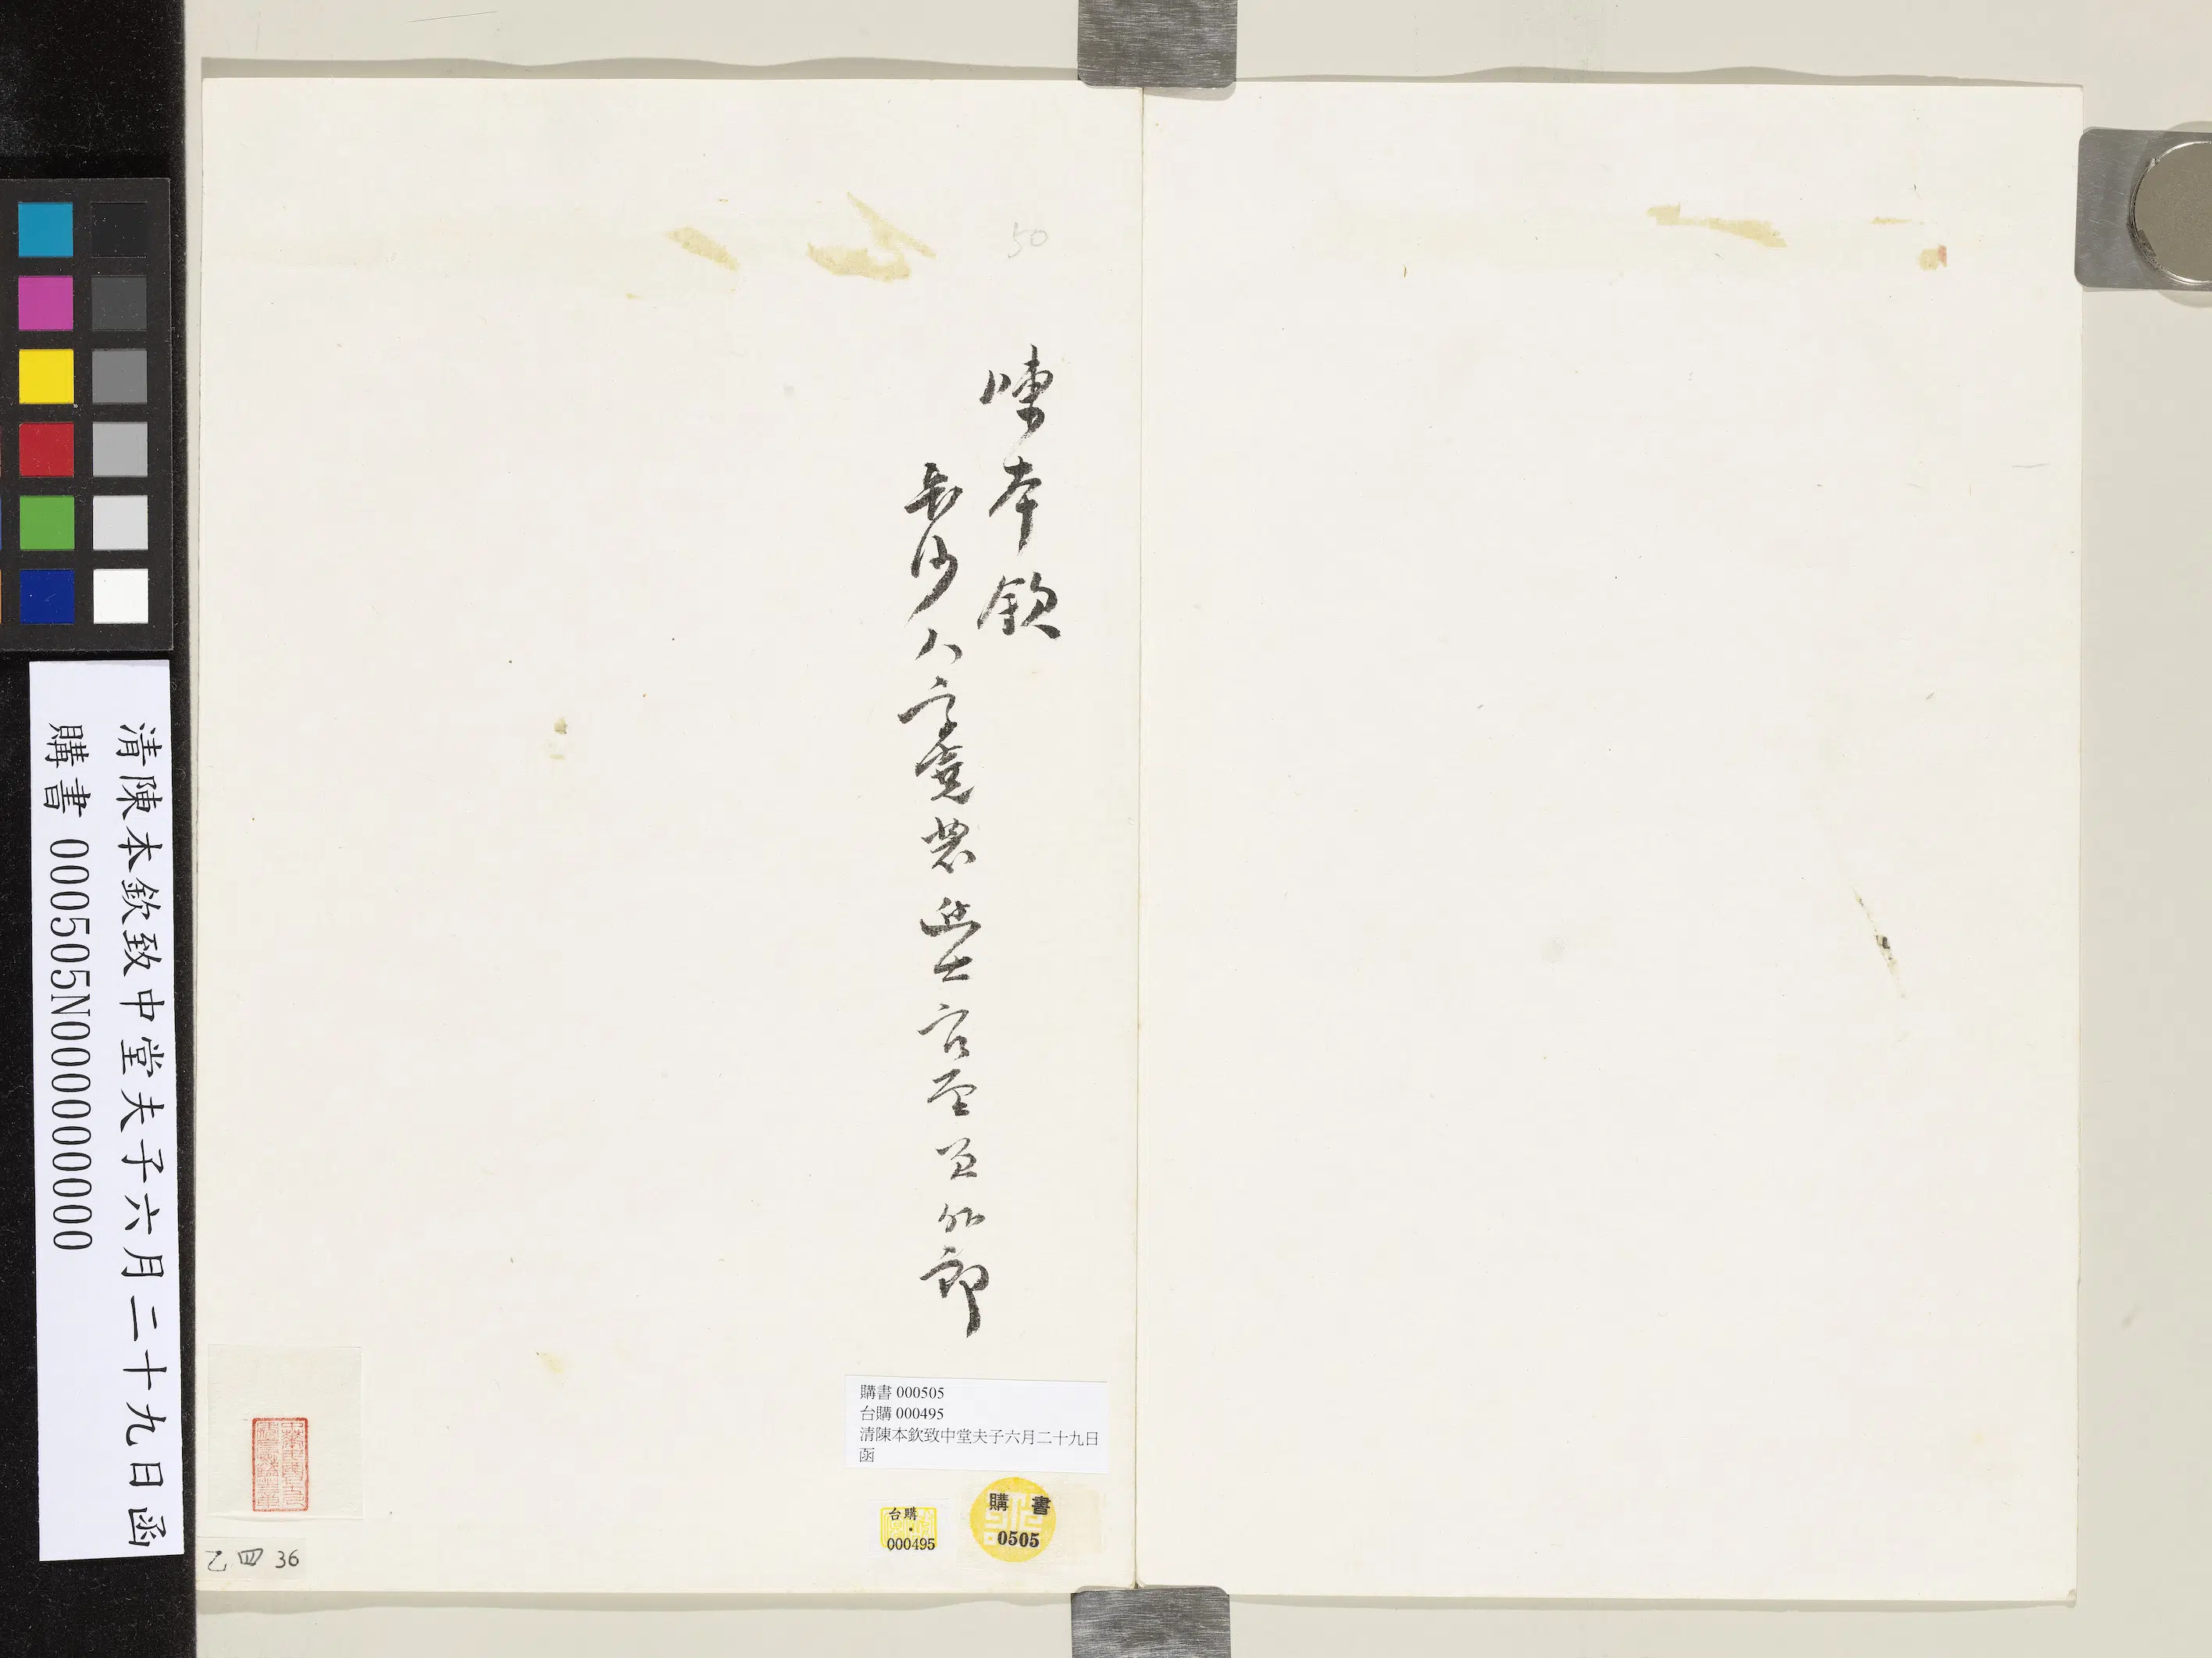 50
陳本欽
長沙人字堯農進士官至員外郎
購書 000505
台購 000495
清陳本欽致中堂夫子六月二十九日
函
台購
000495
購書
0505
乙四 36
清陳本欽致中堂夫子六月二十九日函
購書 000505N000000000